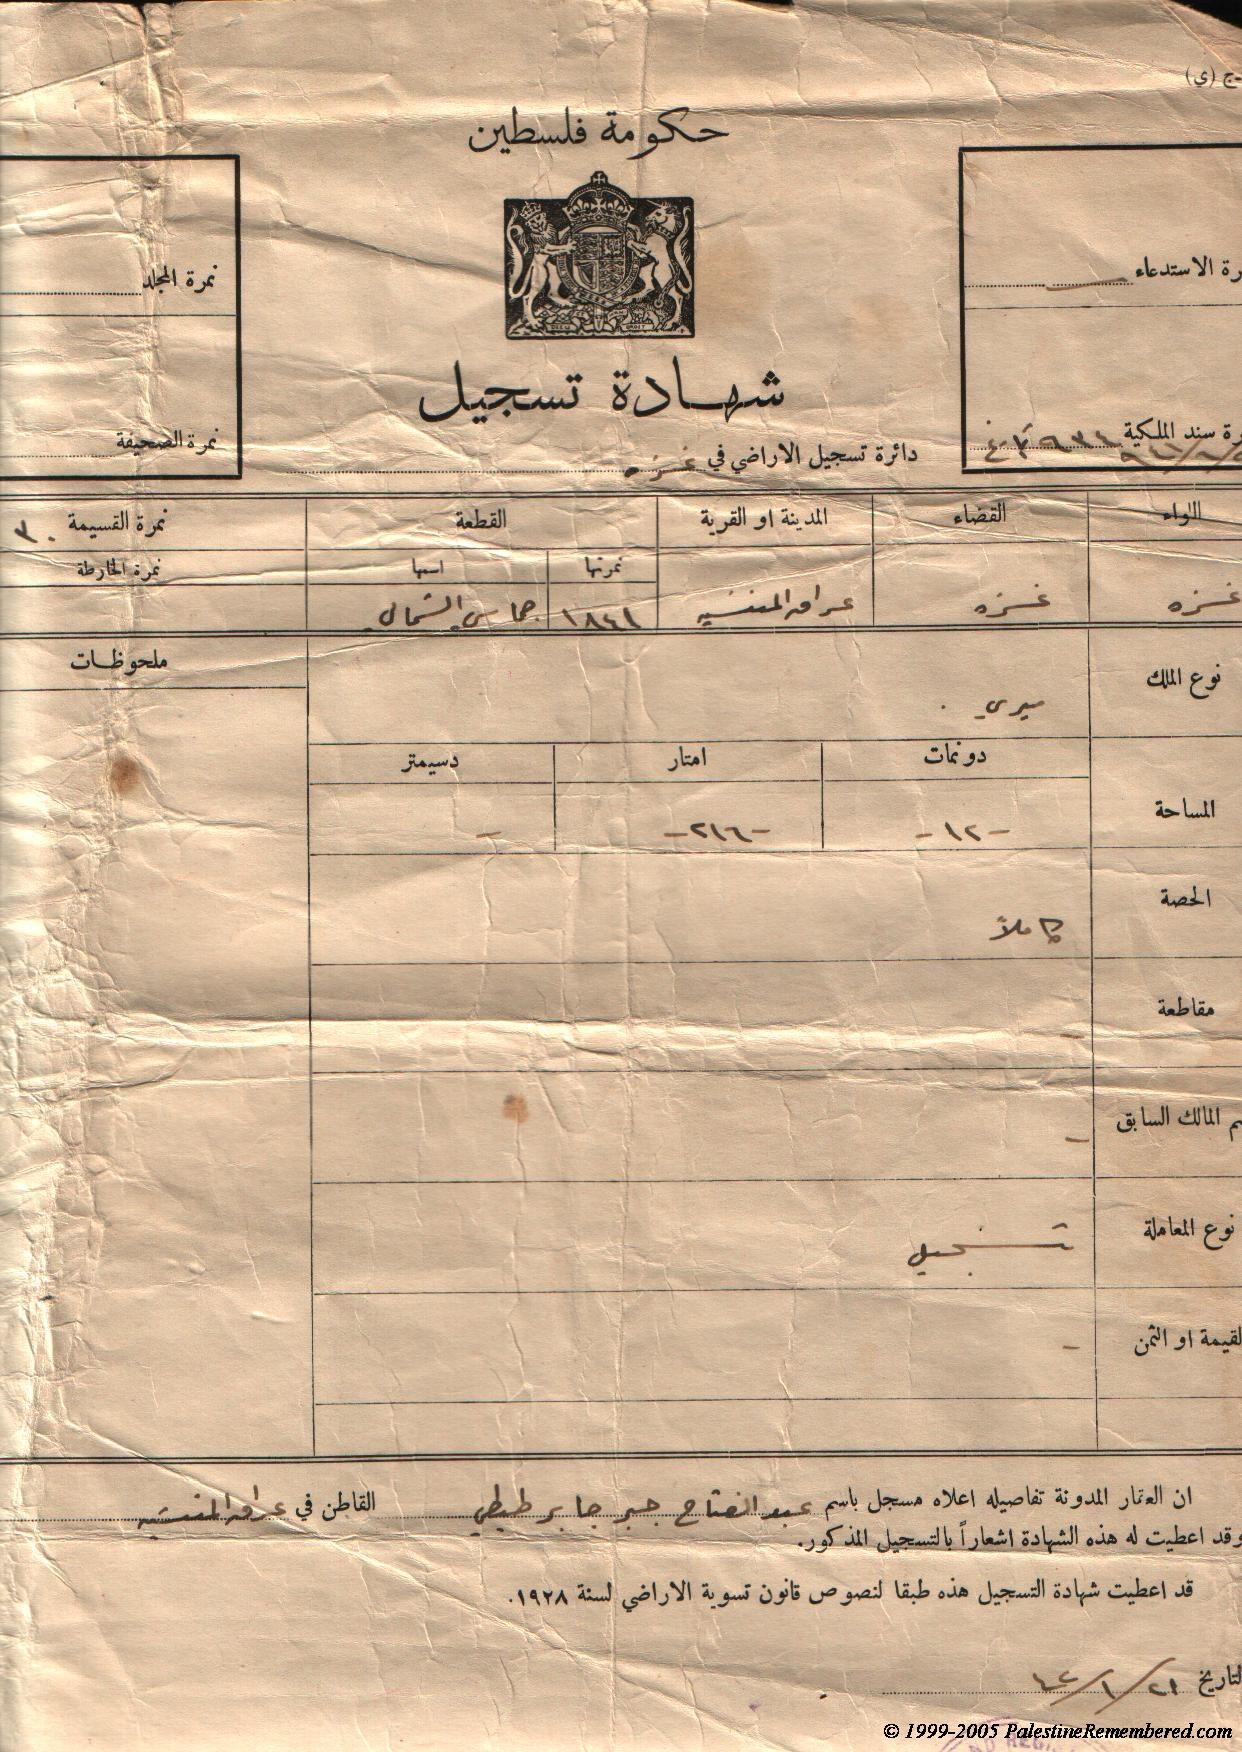 ج (ي)
حكومة فلسطين
نمرة المجلد
رة الاستدعاء
شهادة تسجيل
نمرة الصحيفة
رة سند الملكية
دائرة تسجيل الاراضي في غزه
اللواء
القضاء
المدينة او القرية
القطعة
نمرة القسيمة ٣٠
نمرتها
اسمها
نمرة الخارطة
غزه
غزه
عراق المنشيه
١٨٤١
الشمالي
ملحوظات
نوع الملك
ميري
دونمات
امتار
دسيمتر
المساحة
-١٢-
-٢١٦-
-
الحصة
كاملاً
مقاطعة
-
م المالك السابق
-
نوع المعاملة
تسجيل
لقيمة او الثمن
-
ان العقار المدونة تفاصيله اعلاه مسجل باسم عبد الفتاح جبر جابر طيطي القاطن في عراق المنشيه
وقد اعطيت له هذه الشهادة اشعاراً بالتسجيل المذكور.
قد اعطيت شهادة التسجيل هذه طبقا لنصوص قانون تسوية الاراضي لسنة ١٩٢٨.
لتاريخ ٢١/١/٤٢
© 1999-2005 PalestineRemembered.com